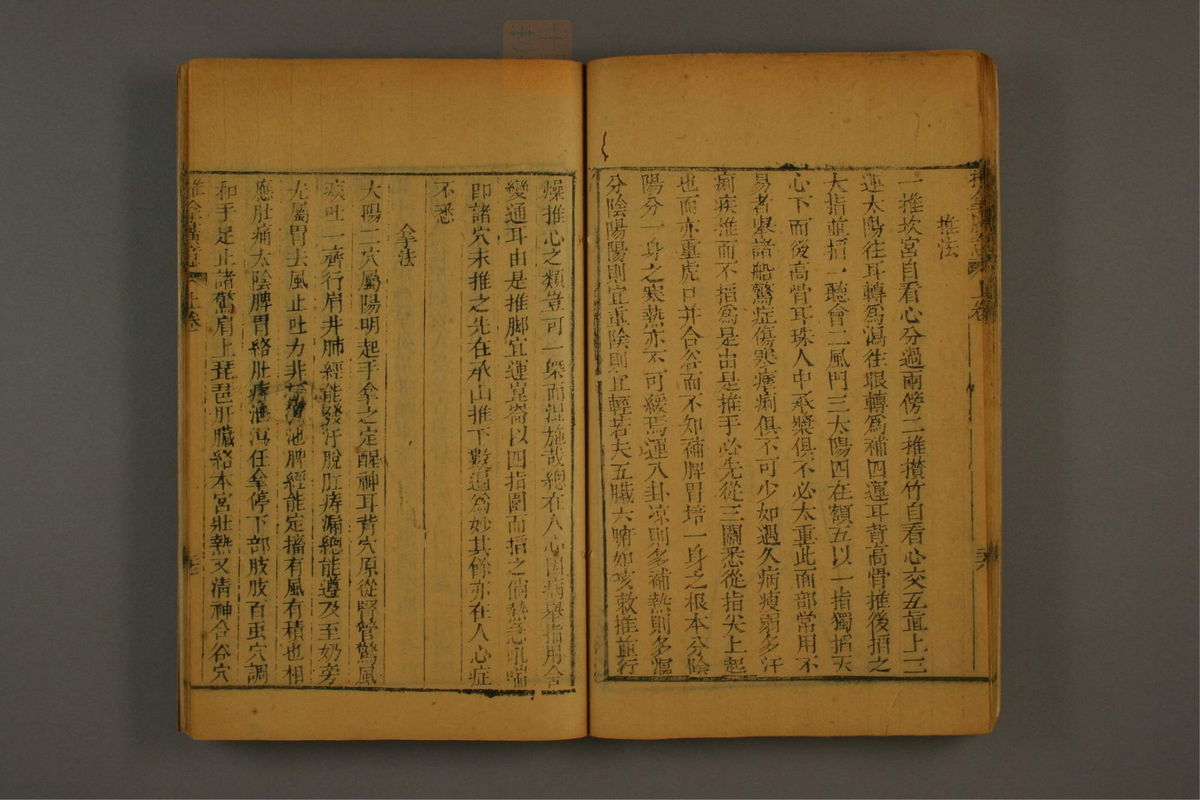 推法
一推坎宮自看心分過兩傍二推攅竹自看心交互直上三
運太陽往耳轉爲瀉往眼轉爲補四運耳背高骨推後掐之
大指並掐一聽會二風門三太陽四在額五以一指獨掐天
心下而後高骨耳珠人中承漿俱不必太重此面部常用不
易者舉諸般驚症傷寒瘧痢俱不可少如遇久病瘦弱多汗
痢疾推而不掐爲是由是推手必先從三關悉從指尖上起
也而亦重虎口并合谷而不知補脾胃培一身之根本分陰
陽分一身之寒熱亦不可緩焉運八卦凉則多補熱則多瀘
分陰陽陽則宜重陰則宜輕若夫五臟六腑如咳嗽推並行
推拿廣意 上卷
燥推心之類豈可一槩而混施哉總在人心因病舉指用舍
變通耳由是推脚宜運崑崙以四指圍而掐之倘熱急吼喘
即諸穴未推之先在承山推下數遍爲妙其餘亦在人心症
不悉
拿法
太陽二穴屬陽明起手拿之定醒神耳背穴原從腎管驚風
痰吐一齊行肩井肺經能發汗脫肛痔漏總能遵及至奶旁
尤屬胃去風止吐力非輕曲池脾經能定搐有風有積也相
應肚痛太陰脾胃絡肚疼泄瀉任拿停下部肢肢百虫穴調
和手足止諸驚肩上琵琶肝臟絡本宮壯熱又清神合谷穴
推拿廣意 上卷